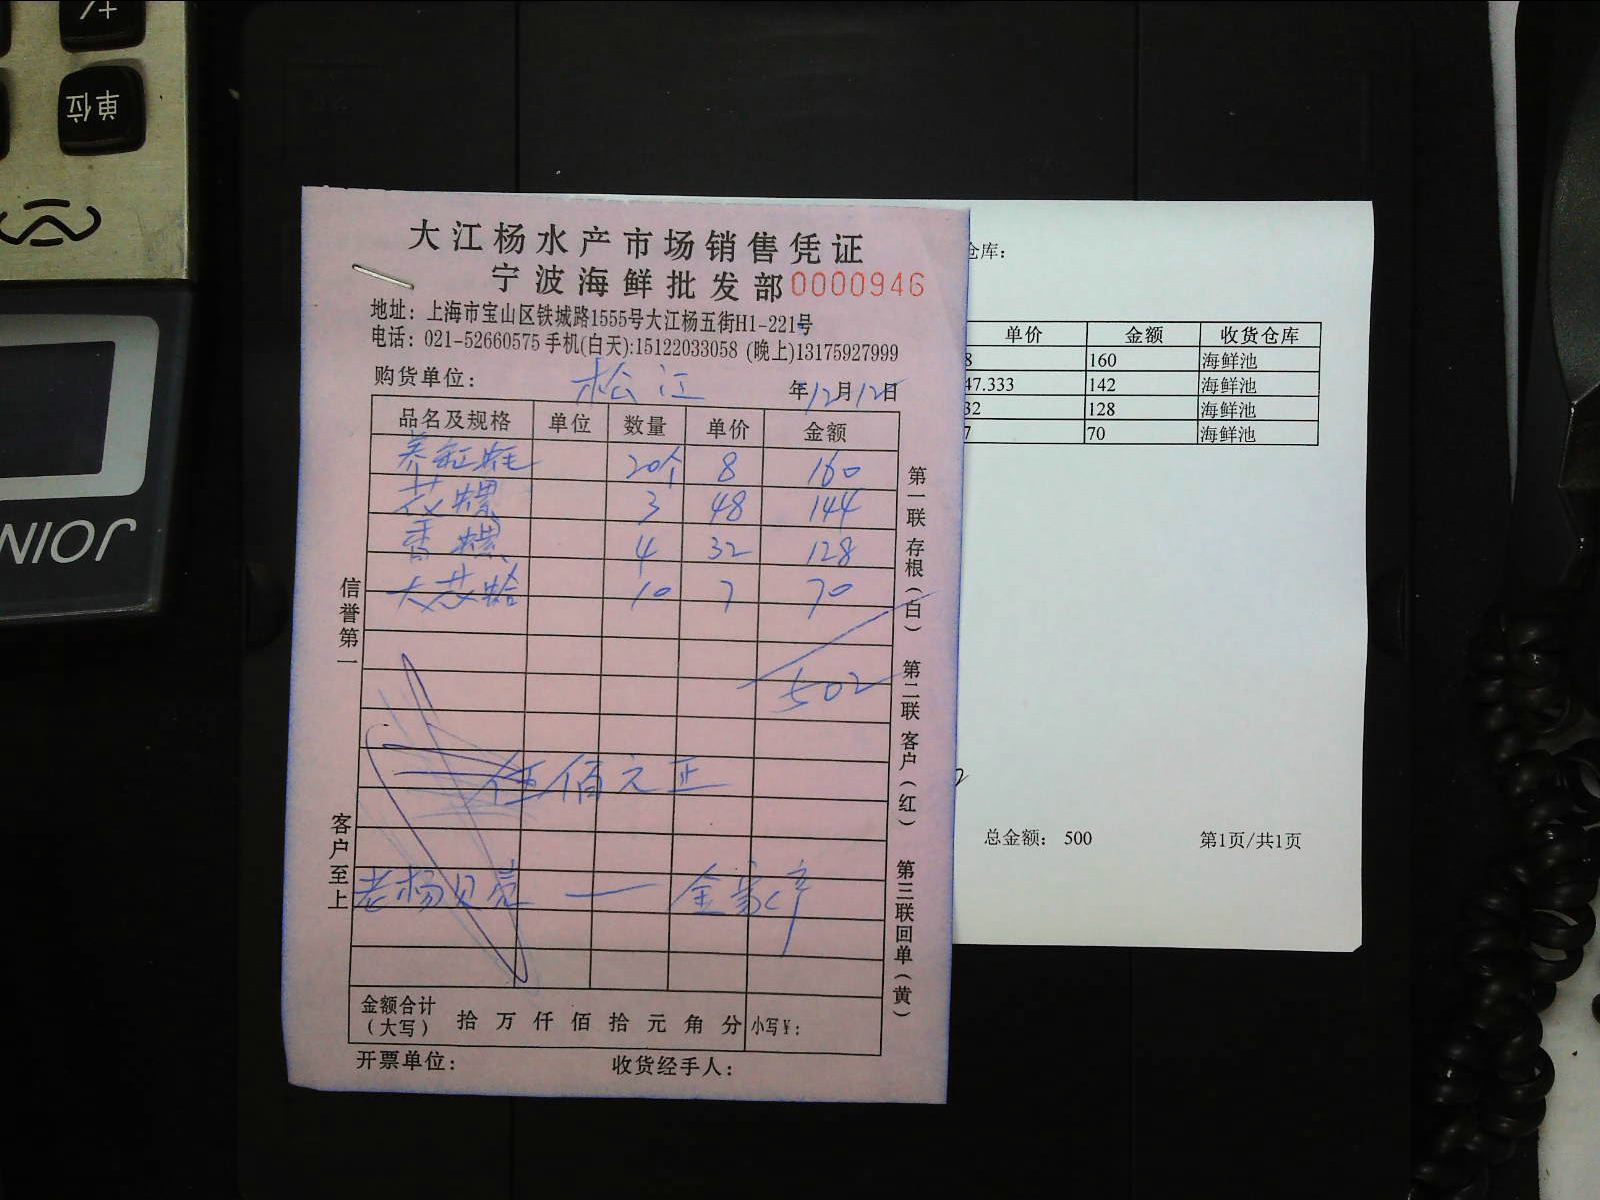 单位
JOIN
大江杨水产市场销售凭证
宁波海鲜批发部 0000946
地址：上海市宝山区铁城路1555号大江杨五街H1-221号
电话：021-52660575 手机(白天):15122033058 (晚上)13175927999
购货单位： 松江 年12月12日
品名及规格 单位 数量 单价 金额
20个 8 160
花螺 3 48 144
香螺 4 32 128
大花蛤 10 7 70
502
伍佰元正
老杨贝壳 — 金家
金额合计（大写） 拾 万 仟 佰 拾 元 角 分 小写¥：
开票单位： 收货经手人：
信誉第一
客户至上
第一联 存根（白） 第二联 客户（红） 第三联 回单（黄）
仓库：
单价 金额 收货仓库
8 160 海鲜池
47.333 142 海鲜池
32 128 海鲜池
7 70 海鲜池
总金额： 500 第1页/共1页